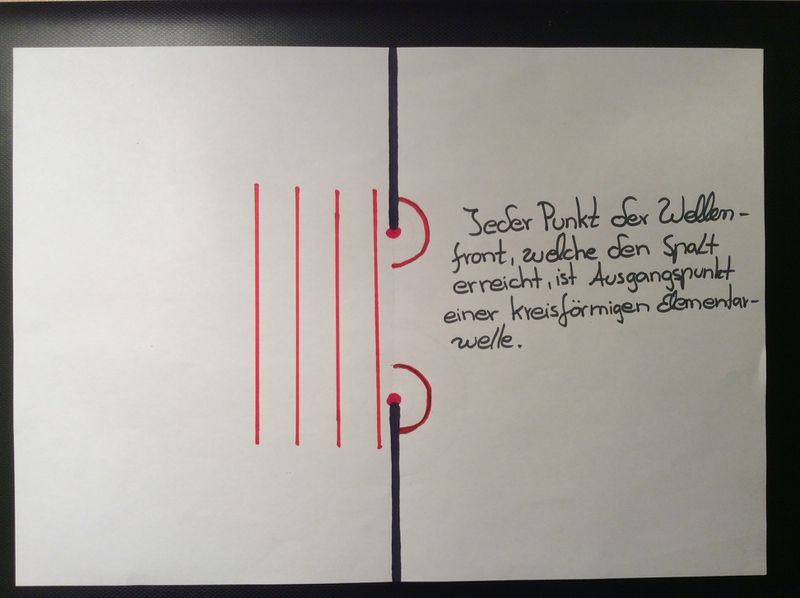 Jeder Punkt der Wellen-
front, welche den Spalt
erreicht, ist Ausgangspunkt
einer kreisförmigen Elementar-
welle.